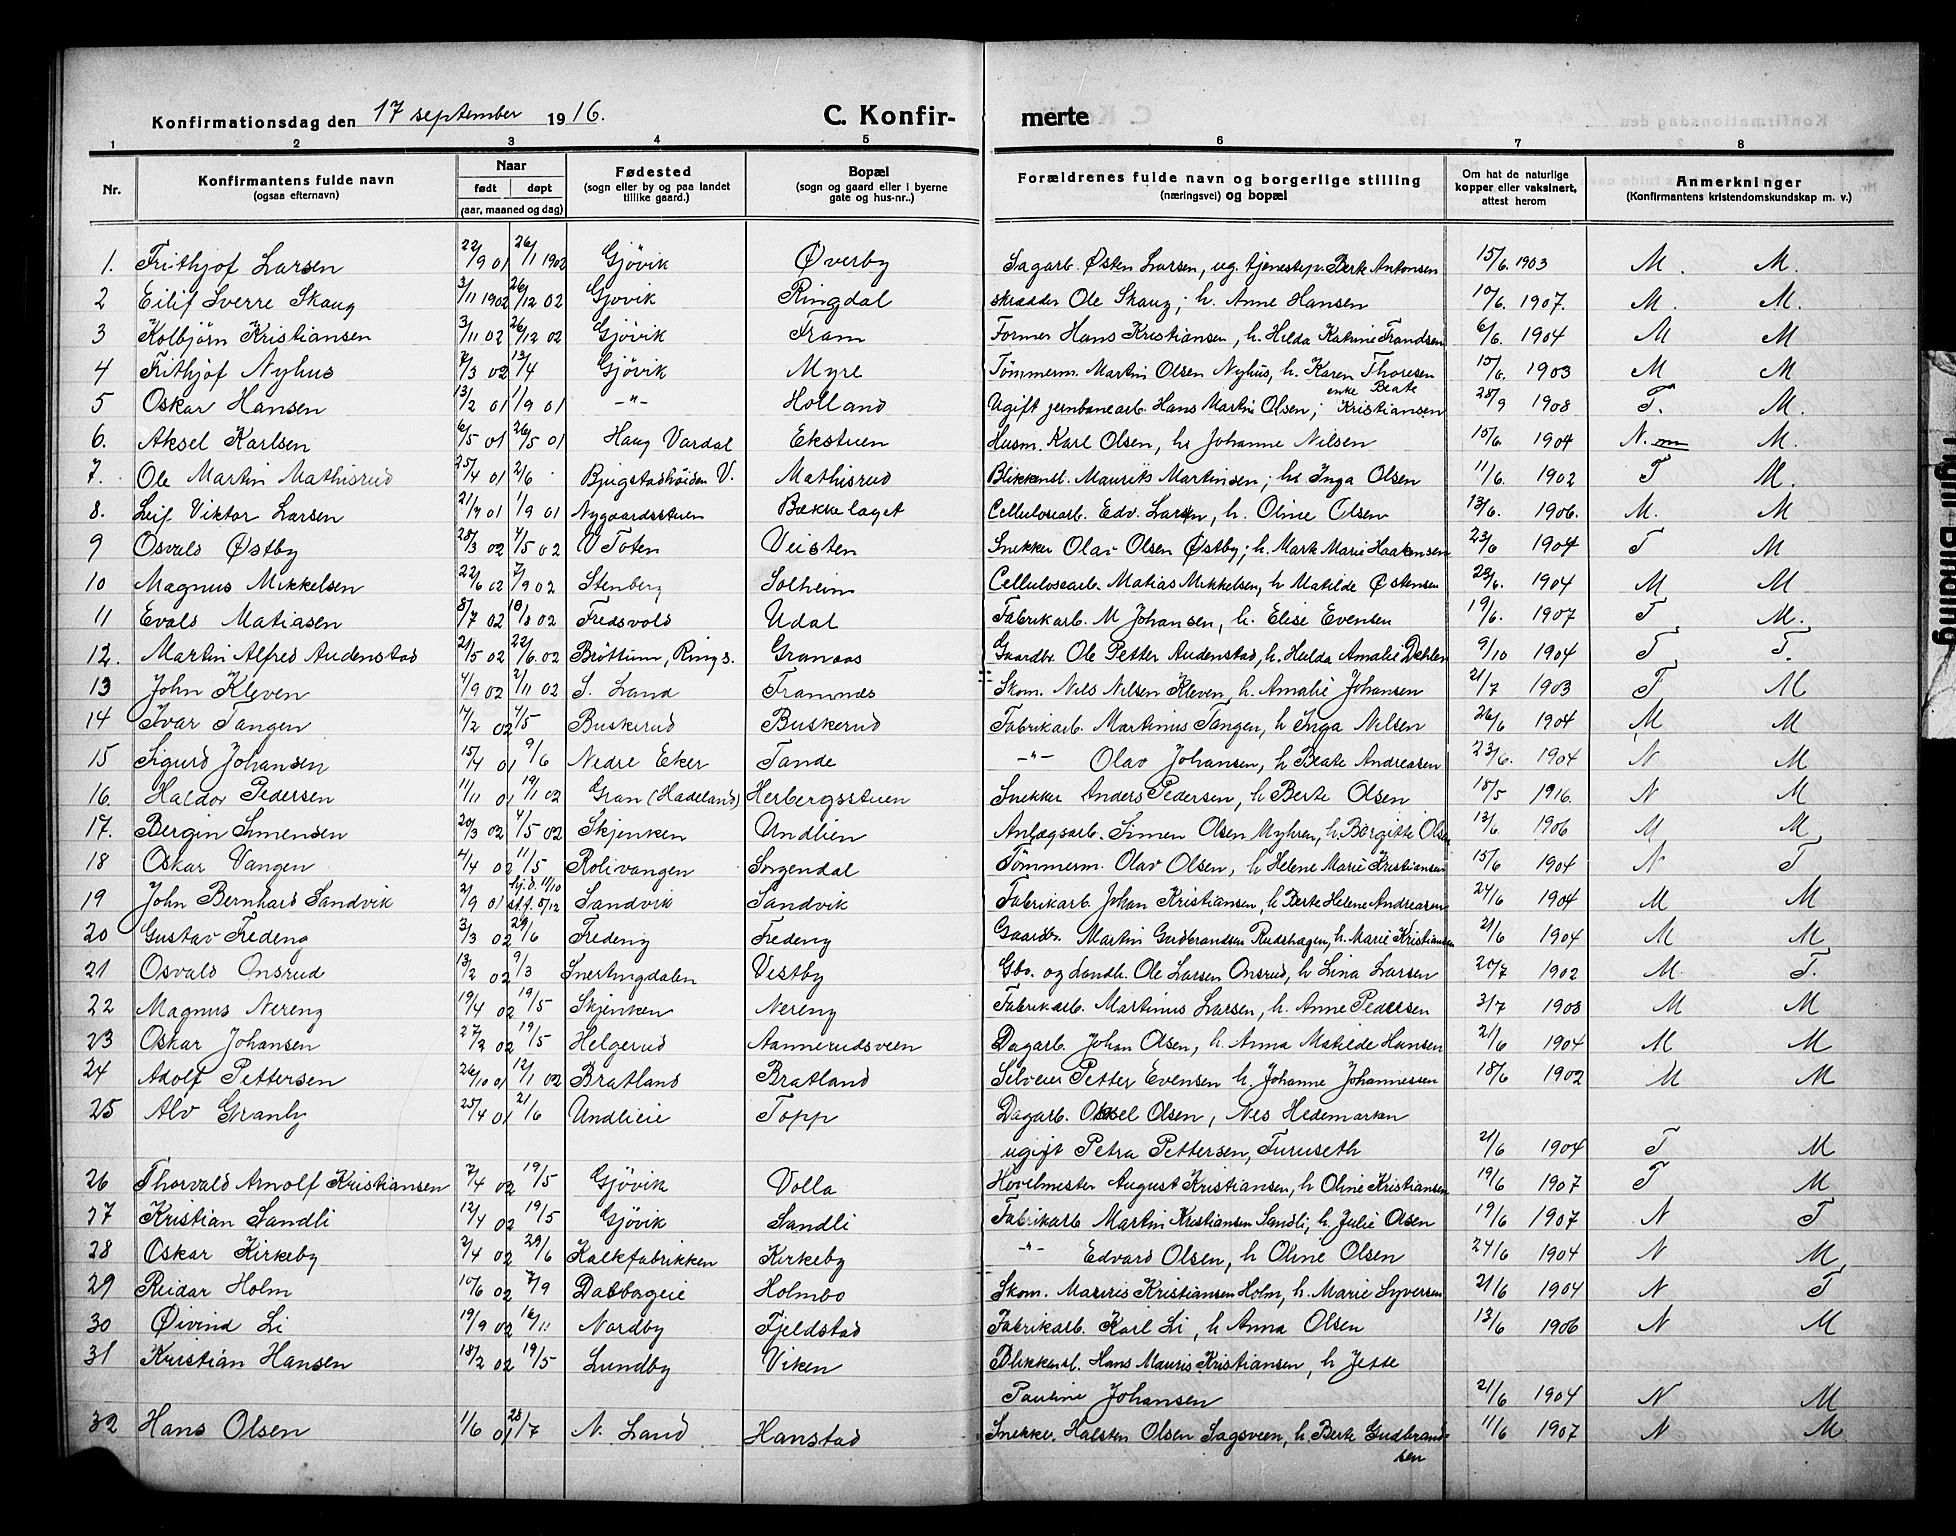 Konfirmationsdag den 17 september 1916. C. Konfir- merte
1 2 3 4 5 6 7 8
Nr. Konfirmantens fulde navn (ogsaa efternavn) Naar født døpt (aar, maaned og dag) Fødested (sogn eller by og paa landet tillike gaard.) Bopæl (sogn og gaard eller i byerne gate og hus-nr..) Forældrenes fulde navn og borgerlige stilling (næringsvei) og bopæl Om hat de naturlige kopper eller vaksinert, attest herom Anmerkninger (Konfirmantens kristendomskundskap m. v.)
1. Frithjof Larsen 22/9 01 26/1 1902 Gjövik Øverby Sagarb. Østen Larsen, ug. tjenestep. Berte Antonsen 15/6. 1903 M. M.
2 Eilif Sverre Skaug 3/11 1902 26/12 02 Gjovik Ringdal skrædder Ole Skaug; h. Anne Hansen 10/6. 1907. M. M.
3 Kolbjörn Kristiansen 3/11 02 26/12 02 Gjövik Fram Former Hans Kristiansen, h. Hilda Katrine Frandsen 6/6. 1904 M M
4 Frithjof Nyhus 7/3 02 13/4 Gjövik Myre Tømmerm. Martin Olsen Nyhus, h. Karen Thoresen 15/6. 1903 M M
5 Oskar Hansen 13/2 01 1/9 01 -"- Holland Ugift jernbanearb. Hans Martin Olsen; enke Beate Kristiansen 28/9 1908 T. M.
6. Aksel Karlsen 6/5 01 26/5 01 Haug Vardal Ekstuen Husm. Karl Olsen, h. Johanne Nilsen 15/6. 1904 N. M.
7. Ole Martin Mathisrud 25/4 01 2/6 Bjugstadhöiden V. Mathisrud Blikkensl. Maurits Martinsen; h. Inga Olsen 11/6. 1902 T M.
8. Leif Viktor Larsen 21/7 01 1/9 01 Nygaardsstuen Bækkelaget Cellulosearb. Edv. Larsen, h. Oline Olsen 13/6. 1906. M. M
9 Osvald Østby 28/3 02 4/5 02 V Toten Veisten Snekker Olav Olsen Østby; h. Mark Marie Haakensen 23/6 1904 T M
10 Magnus Mikkelsen 22/6 02 7/9 02 Stenberg Solheim Cellulosearb. Matias Mikkelsen, h Matilde Østensen 28/6. 1904 M M
11 Evald Matiasen 8/7 02 10/8 02 Fredsvold Udal Fabrikarb. M Johansen, h. Elise Evensen 19/6. 1907 T M.
12. Martin Alfred Audenstad 21/5 02 22/6. 02 Bröttum, Rings. Granaas Gaardbr. Ole Petter Audenstad, h. Hulda Amalie Dehlen 9/10 1904 T T.
13 John Kleven 4/9 02 2/11 02 S. Land Framnæs Skom. Nils Nilsen Kleven, h. Amalie Johansen 21/7 1903 T M
14 Ivar Tangen 14/2 02 4/5 Buskerud Buskerud Fabrikarb. Martinus Tangen, h Inga Nilsen 26/6 1904 M M
15 Sigurd Johansen 15/4 01 9/6 Nedre Eker Tande -"- Olav Johansen, h Beate Andreasen 23/6. 1904 N M
16. Haldor Pedersen 11/11 01 19/1 02 Gran (Hadeland) Herbergsstuen Snekker Anders Pedersen, h Berte Olsen 18/5 1916. N M
17. Bergin Simensen 20/3 02 4/5 02 Skjenken Undlien Anlægsarb. Simen Olsen Myhren, h. Borgitte Olsen 13/6. 1906 M M
18 Oskar Vangen 4/4 02 11/5 Rolivangen Sorgendal Tömmerm. Olav Olsen, h Helene Marie Kristiansen 15/6 1904 N T
19 John Bernhard Sandvik 2/9 01 hj.d. 11/10 st.f. 8/12 Sandvik Sandvik Fabrikarb. Johan Kristiansen, h Berte Helene Andreasen 24/6 1904 M M
20 Gustav Fredeng 3/3 02 29/6 Fredeng Fredeng Gaardbr. Martin Gudbrandsen Rudshagen, h. Marie Kristiansen 21/6 1904 M M
21 Osvald Onsrud 13/2 02 9/3 Snertingdalen Vestby Gbr. og Landh. Ole Larsen Onsrud, h Lina Larsen 20/7 1902 M. T.
22 Magnus Nereng 19/4 02 19/5 Skjenken Nereng Fabrikarb. Martinus Larsen, h. Anne Pedersen 3/7 1908 M M
23 Oskar Johansen 27/2 02 19/5 Helgerud Aannerudsveen Dagarb. Johan Olsen, h. Anna Matilde Hansen 21/6 1904 M M
24 Adolf Pettersen 26/10 01 12/1 02 Bratland Bratland Selveier Petter Evensen h. Johanne Johannessen 18/6 1902 M M
25 Alv Granly 25/4 01 21/6 Undlieie Topp Dagarb. Aksel Olsen, Nes Hedemarken
ugift Petra Pettersen, Furuseth 21/6 1904 T M
26 Thorvald Arnolf Kristiansen 7/4 02 19/5 Gjövik Volla Hövelmester August Kristiansen, h Oline Kristiansen 19/6 1907 T M
27 Kristian Sandli 12/4 02 19/5 Gjövik Sandli Fabrikarb Martin Kristiansen Sandli, h. Julie Olsen 19/6 1907 N T
28 Oskar Kirkeby 2/4 02 29/6 Kalkfabrikken Kirkeby -"- Edvard Olsen, h Oline Olsen 24/6 1904 N M
29 Reidar Holm 10/6 02 7/9 Dalborgeie Holmbo Skom. Mauris Kristiansen Holm, h. Marie Syversen 21/6 1904 N T
30 Øivind Li 19/9 02 16/11 Nordby Fjeldstad Fabrikarb. Karl Li, h Anna Olsen 13/6 1906 N M
31 Kristian Hansen 18/2 02 19/5 Lundby Viken Blikkensl. Hans Mauris Kristiansen, h Jette
Pauline Johansen 21/6 1904 N M
32 Hans Olsen 1/6 01 28/7 N. Land Hanstad Snekker Halsten Olsen Sagsveen, h. Berte Gudbrand-
sen 11/6 1907 N M